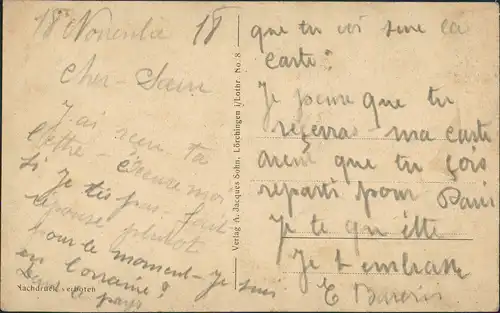 18 Novembre 18
Cher
J'ai recu ta
lettre - excuse moi
si Je tes pas fait
réponse plutot
pour le moment - Je suis
en lorraine!
dans le pays
que tu voi sur la
carte:
Je pense que tu
reserras ma carte
avent que tu sois
reparti pour Paris
Je te quitte
Je t embrasse
E
Verlag A. Jacques Sohn, Lörchingen i/Lothr. No. 8
Nachdruck verboten